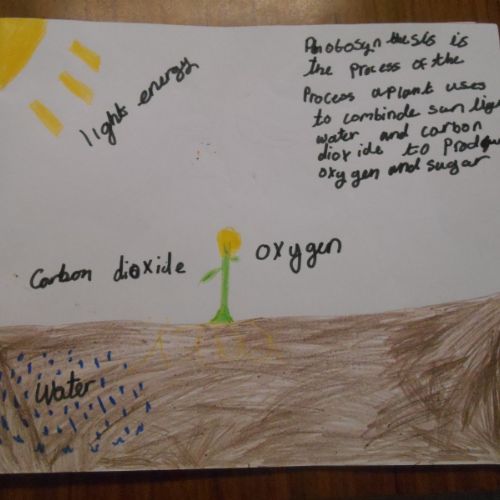 lights energy
Photosyn thesis is
the process of the
process a plant uses
to combinde sun lig
water and carbon
dioxide to Prod
oxygen and sugar
Carbon dioxide
oxygen
Water